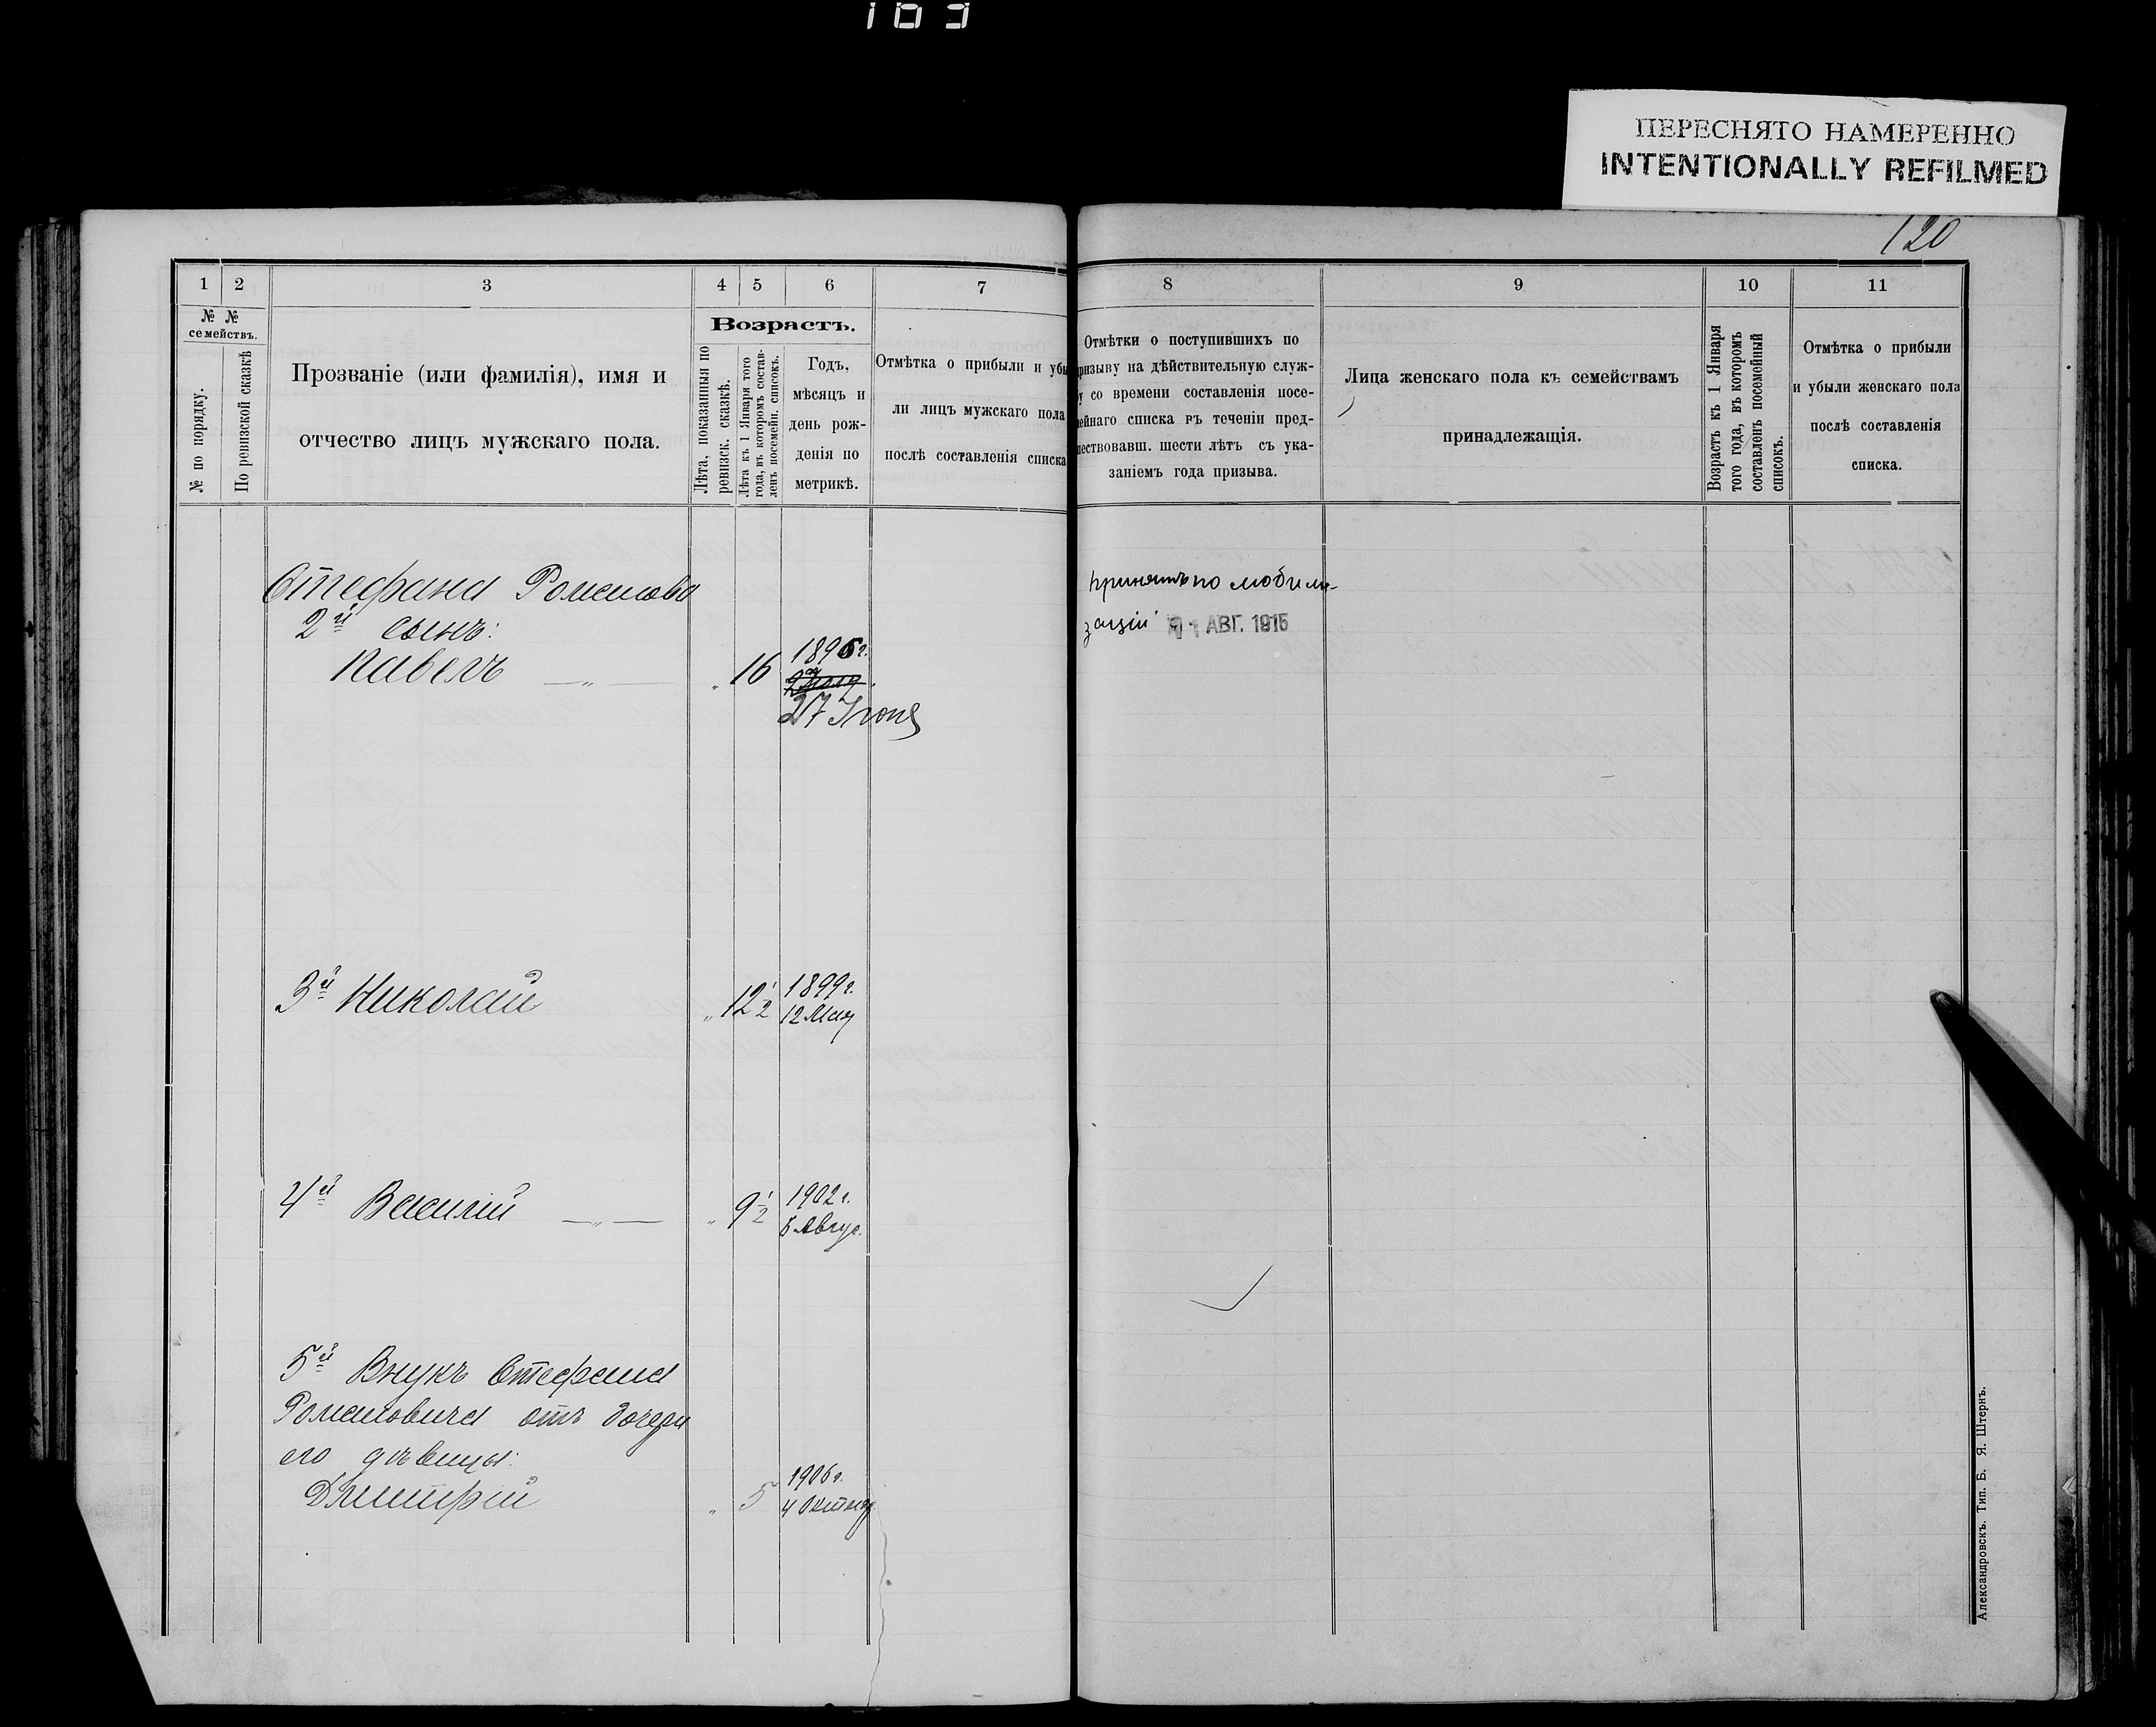 163
ПЕРЕСНЯТО НАМЕРЕННО
INTENTIONALLY REFILMED
120
1 2 3 4 5 6 7
№ № семействъ.
№ по порядку.
По ревизской сказкѣ
Прозваніе (или фамилія), имя и
отчество лицъ мужскаго пола.
Возрастъ.
Лѣта, показанныя по
ревизск. сказкѣ.
Лѣта къ 1 Января того
года, въ которомъ состав-
ленъ посемейн. списокъ.
Годъ,
мѣсяцъ и
день рож-
денія по
метрикѣ.
Отмѣтка о прибыли и убы
ли лицъ мужскаго пола
послѣ составленія списка
Стефана Романова
2й сынъ:
Павелъ — „ — „ 16 1896 г.
27 Іюня
3й Николай „ 12 1/2 1899 г.
12 Мая
4й Василій — „ — „ 9 1/2 1902 г.
Авгус.
5й Внукъ Стефана
Романовича отъ дочери
его дѣвицы:
Дмитрій „ 5 1906 г.
4 Октяб
8 9 10 11
Отмѣтки о поступившихъ по
ризыву на дѣйствительную служ-
у со времени составленія посе-
ейнаго списка въ теченіи пред-
ествовавш. шести лѣтъ съ ука-
заніемъ года призыва.
Лица женскаго пола къ семействамъ
принадлежащія.
Возрастъ къ 1 Января
того года, въ которомъ
составленъ посемейный
списокъ.
Отмѣтка о прибыли
и убыли женскаго пола
послѣ составленія
списка.
принятъ по мобили-
заціи АВГ. 1915
Александровскъ. Тип. Б. Я. Штернъ.